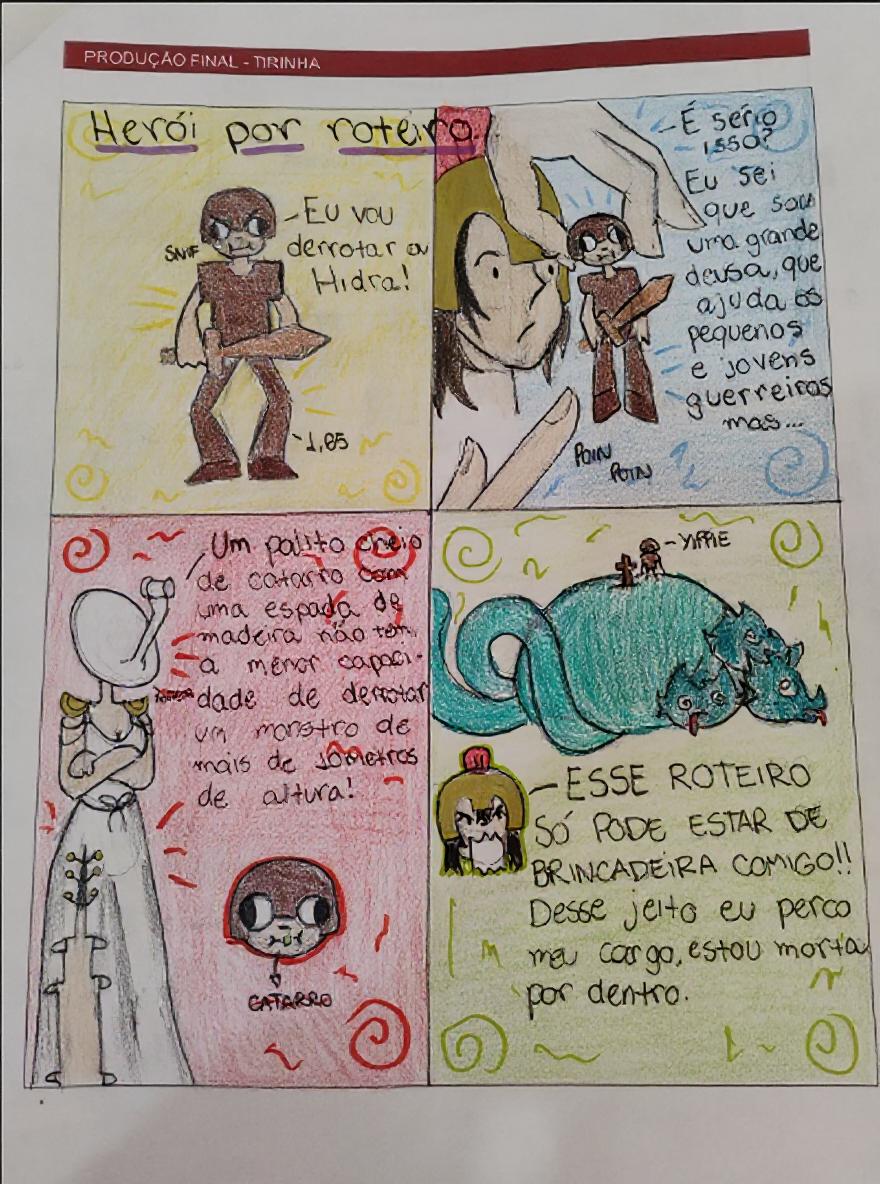 PRODUÇÃO FINAL - TIRINHA
Herói por roteiro
SNIF
-Eu vou
derrotar a
Hidra!
-1,65
-É sério
isso?
Eu sei
que sou
uma grande
deusa, que
ajuda os
pequenos
e jovens
guerreiros
mas...
POIN
POIN
Um palito cheio
de catarro com
uma espada de
madeira não tem
a menor capaci-
dade de derrotar
um monstro de
mais de 10metros
de altura!
CATARRO
-YIPPIE
-ESSE ROTEIRO
SÓ PODE ESTAR DE
BRINCADEIRA COMIGO!!
Desse jeito eu perco
meu cargo, estou morta
por dentro.